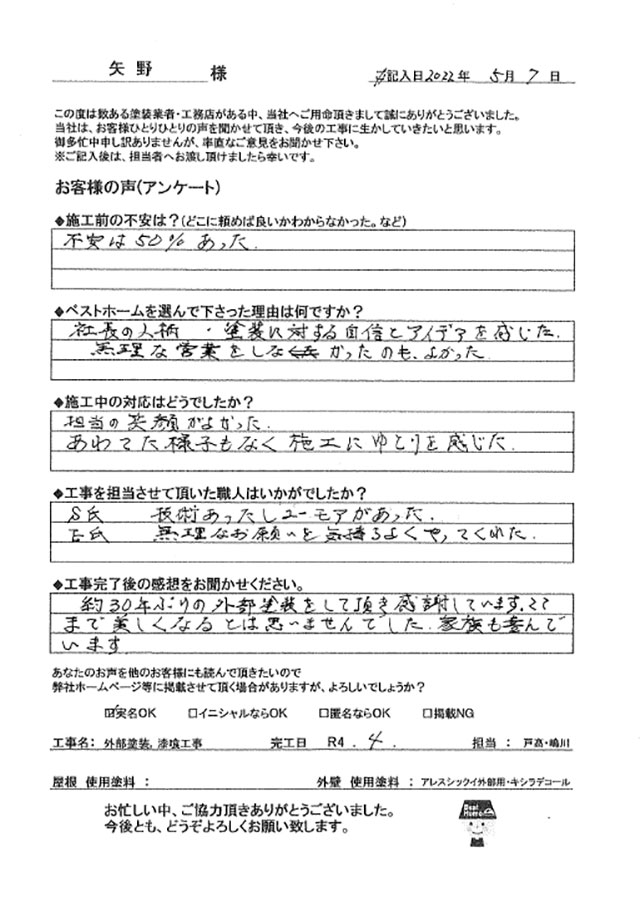 矢野 様
ご記入日 2022年 5月 7日
この度は数ある塗装業者・工務店がある中、当社へご用命頂きまして誠にありがとうございました。
当社は、お客様ひとりひとりの声を聞かせて頂き、今後の工事に生かしていきたいと思います。
御多忙中申し訳ありませんが、率直なご意見をお聞かせ下さい。
※ご記入後は、担当者へお渡し頂けましたら幸いです。
お客様の声(アンケート)
◆施工前の不安は?(どこに頼めば良いかわからなかった。など)
不安は50%あった.
◆ベストホームを選んで下さった理由は何ですか?
社長の人柄 ・塗装に対する自信とアイデアを感じた.
無理な営業をしなかったのも、よかった
◆施工中の対応はどうでしたか?
担当の笑顔がよかった.
あわてた様子もなく施工にゆとりを感じた.
◆工事を担当させて頂いた職人はいかがでしたか?
S氏 技術あったしユーモアがあった.
E氏 無理なお願いを気持ちよくやってくれた.
◆工事完了後の感想をお聞かせください。
約30年ぶりの外部塗装をして頂き感謝しています.ここ
まで美しくなるとは思いませんでした.家族も喜んで
います
あなたのお声を他のお客様にも読んで頂きたいので
弊社ホームページ等に掲載させて頂く場合がありますが、よろしいでしょうか?
☑実名OK □イニシャルならOK □匿名ならOK □掲載NG
工事名: 外部塗装,漆喰工事 完工日 R4 . 4 . 担当 : 戸高・嶋川
屋根 使用塗料 : 外壁 使用塗料 : アレスシックイ外部用・キシラデコール
お忙しい中、ご協力頂きありがとうございました。
今後とも、どうぞよろしくお願い致します。
Best Home